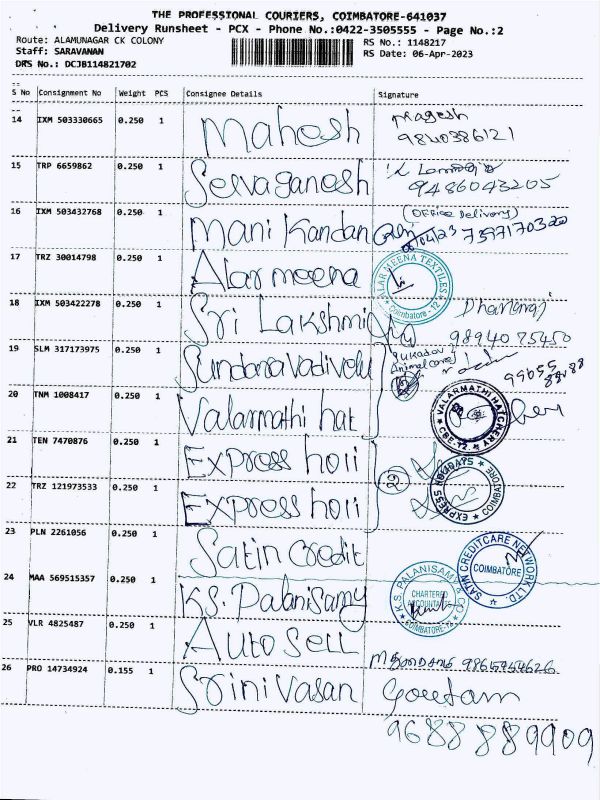 THE PROFESSIONAL COURIERS, COIMBATORE-641037
Delivery Runsheet - PCX - Phone No.:0422-3505555 - Page No.:2
Route: ALAMUNAGAR CK COLONY
RS No.: 1148217
Staff: SARAVANAN
RS Date: 06-Apr-2023
DRS No.: DCJB114821702
S No Consignment No Weight PCS Consignee Details Signature
14 IXM 503330665 0.250 1 Mahesh Magesh
9840386121
15 TRP 6659862 0.250 1 Selvaganesh
9486043205
16 IXM 503432768 0.250 1 Mani Kandan (Office Delivery)
7397170320
17 TRZ 30014798 0.250 1 Alar meena ALAR MEENA TEXTILES Coimbatore - 12
18 IXM 503422278 0.250 1 Sri Lakshmi Dhanaraj
9894075450
19 SLM 317173975 0.250 1 Sundaravadivelu
20 TNM 1008417 0.250 1 Valarmathi hat VALARMATHI HATCHERY CBE-12
21 TEN 7470876 0.250 1 Express holi
22 TRZ 121973533 0.250 1 Express holi 2 EXPRESS HOLIDAYS COIMBATORE
23 PLN 2261056 0.250 1 Satin Credit SATIN CREDITCARE NETWORK LTD. COIMBATORE
24 MAA 569515357 0.250 1 K.S. Palanisamy K.S. PALANISAMY & CO CHARTERED ACCOUNTANTS COIMBATORE-12
25 VLR 4825487 0.250 1 Auto Sell
26 PRO 14734924 0.155 1 Srinivasan Goutam
9688889909